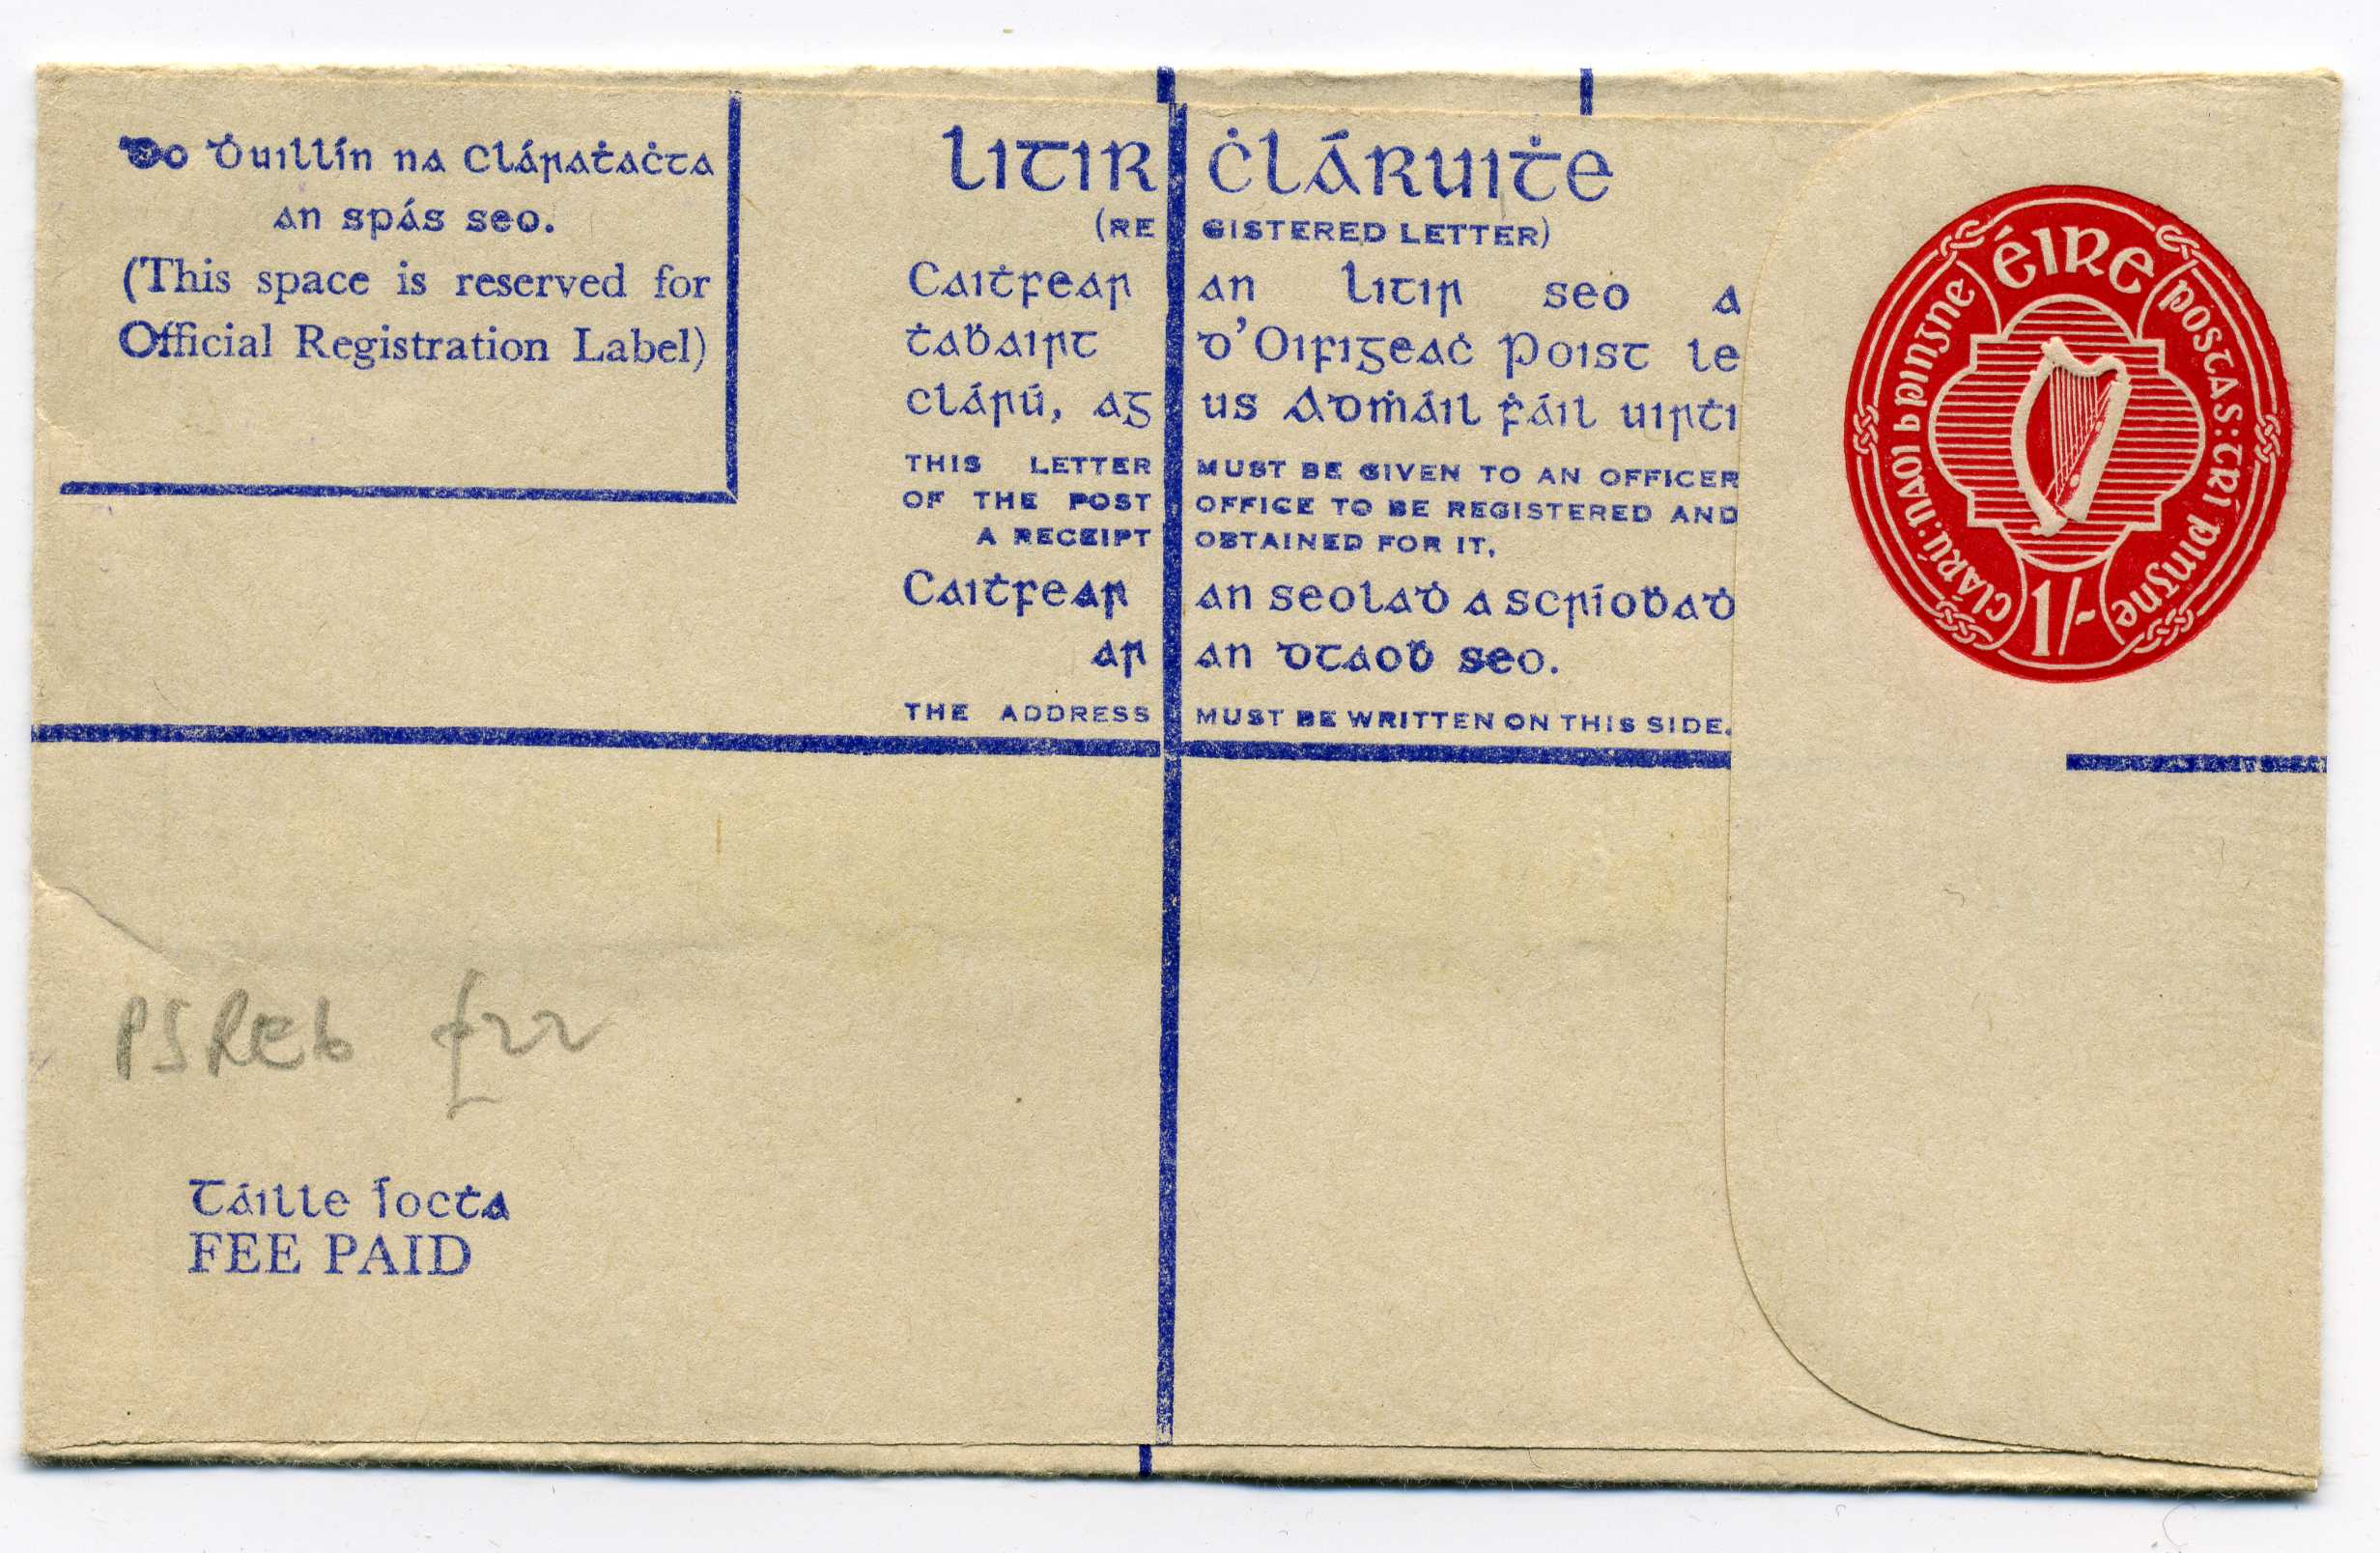 Do Ḋuillín na Cláraṫaċta
an spás seo.
(This space is reserved for
Official Registration Label)
LITIR ĊLÁRUIṪE
(REGISTERED LETTER)
Caiṫfear an litir seo a
ṫaḃairt d'Oifigeaċ Poist le
clárú, agus Admáil ḟáil uirṫi
THIS LETTER MUST BE GIVEN TO AN OFFICER
OF THE POST OFFICE TO BE REGISTERED AND
A RECEIPT OBTAINED FOR IT.
Caiṫfear an seolaḋ a scríoḃaḋ
ar an dtaoḃ seo.
THE ADDRESS MUST BE WRITTEN ON THIS SIDE.
éIRe
CLÁRÚ: NAOI bPINGNE
POSTAS: TRÍ PINGNE
1/-
PSRE6 £22
Táille Íocṫa
FEE PAID